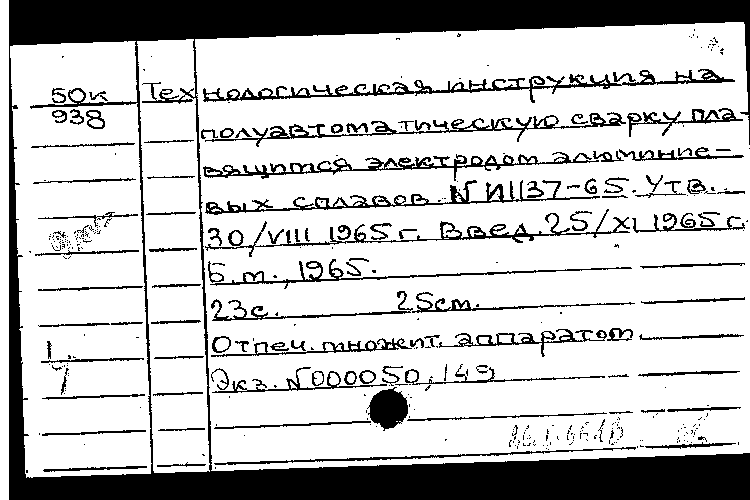 50к Технологическая инструкция на
938 полуавтоматическую сварку пла-
вящимся электродом алюминие-
вых сплавов N И1137-65. Утв.
30/VIII 1965 г. Введ. 25/XI 1965 г.
Б.м., 1965.
23с. 25см.
1. Отпеч. множит. аппаратом.
7 Экз. N000050, 149